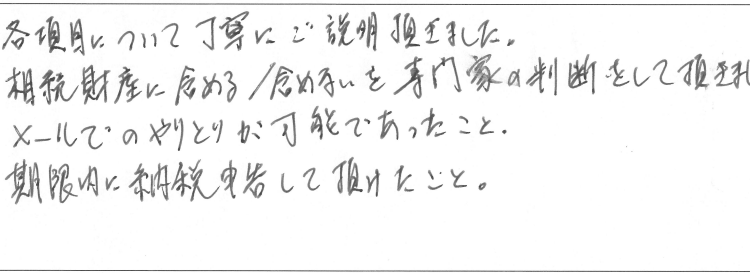 各項目について丁寧にご説明頂きました。
相続財産に含める/含めないを専門家の判断をして頂きま
メールでのやりとりが可能であったこと.
期限内に納税申告して頂けたこと。